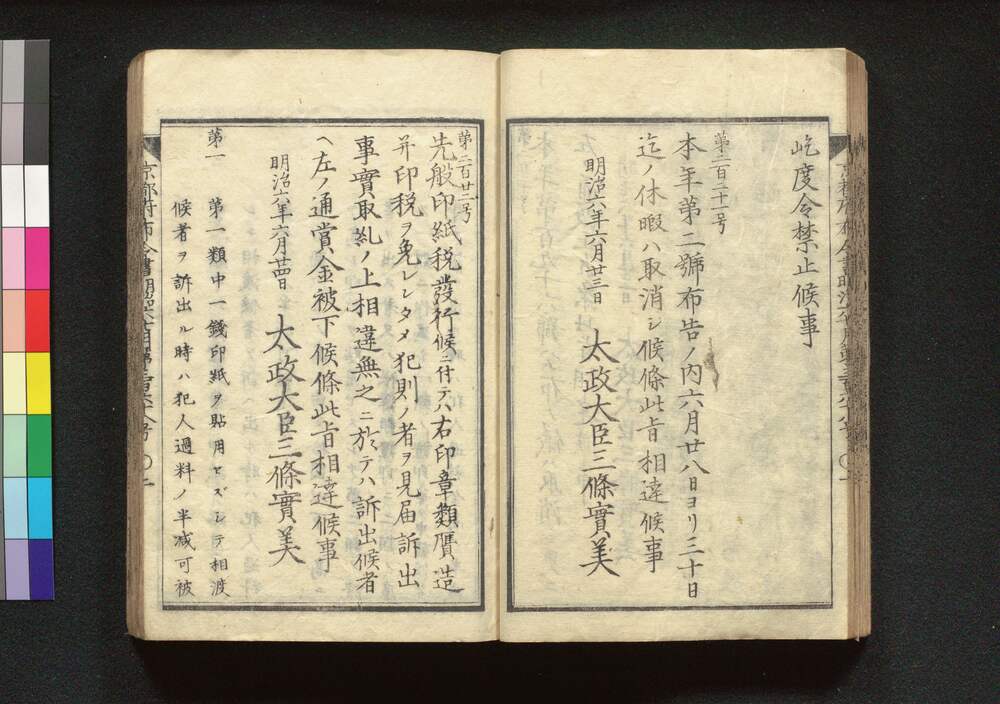 屹度令禁止候事
第二百二十一号
本年第二號布告ノ内六月廿八日ヨリ三十日
迄ノ休暇ハ取消シ候條此㫖相違候事
明治六年六月廿三日
太政大臣三條實美
第二百廿二号
先般印紙税發行候ニ付テハ右印章類贋造
并印税ヲ免レンタメ犯則ノ者ヲ見届訴出
事實取糺ノ上相違無之ニ於テハ訴出候者
ヘ左ノ通賞金被下候條此㫖相達候事
明治六年六月廿四日
太政大臣三條實美
第一 第一類中一錢印紙ヲ貼用セズシテ相渡
候者ヲ訴出ル時ハ犯人過料ノ半減可被